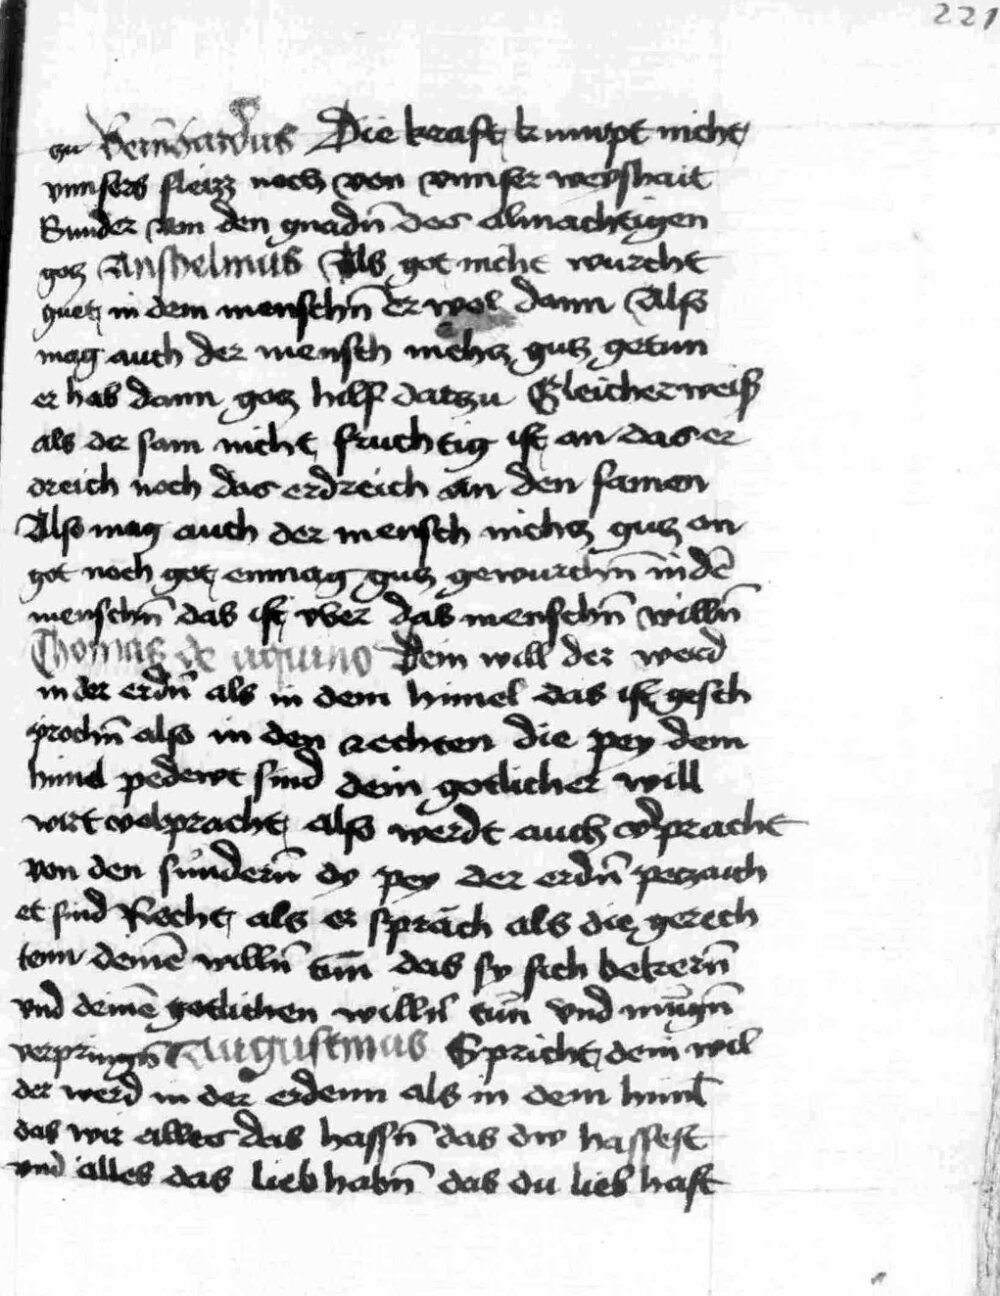 221
zu Bernhardus Die kraft kumpt nicht
vnnsers fleizz noch von vnnser weyshait
Sunder von den gnadn̄ des almachtigen
gotz Anshelmus Als got nicht wurcht
guet in dem menschn̄ er wol dann Also
mag auch der mensch nichtz gutz getun
er hab dann gotz hilf datzu Gleicherweis
als der sam nicht fruchtig ist an das er
dreich noch das erdreich an den samen
Also mag auch der mensch nichtz gutz on
got noch got enmag gutz gewurchn̄ in dē
menschn̄ das ist vber das menschn̄ willn̄
Thomas de aquino Dein will der werd
in der erdn̄ als in dem himel das ist gesch
prochn̄ also in den rechten die pey dem
himel pedewt sind dein gotlicher will
wirt volpracht also werdt auch v̄pracht
von den sundern̄ dy pey der erdn̄ petzaich
et sind Recht als er sprach als die gerech
tenn deinē willn̄ tun̄ das sy sich bekern̄
vnd deinē gotlichen willn̄ tun̄ vnd mugn̄
verpringn̄ Augustinus Spricht dein wil
der werd in der erdenn als in dem himl
das wir alles das hassn̄ das dw hassest
vnd alles das lieb habn̄ das du lieb hast